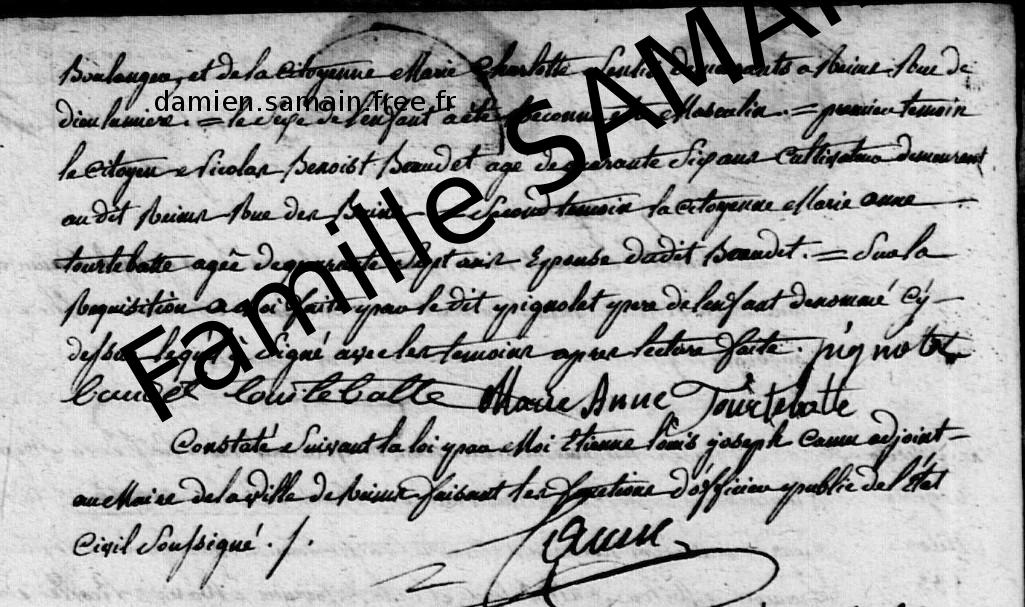 Boulanger, et de la Citoyenne Marie Charlotte Senlis demeurants a Reims Rue de
dieu lumiere. = le Sexe de l'enfant a été Reconnu être Masculin. = premier temoin
damien.samain.free.fr
le Citoyen Nicolas Benoist Baudet agé de quarante Six ans Cultivateur demeurant
au dit Reims Rue des = Second temoin la citoyenne Marie anne
tourtebatte agée de quarante Sept ans Epouse dudit Baudet. = Sur la
Requisition a Moi faite par le dit pignolet pere de l'enfant denommé Cÿ
dessus lequel à Signé avec les temoins apres lecture faite. pignolet
baudet tourtebatte Marie Anne Tourtebatte
Famille SAMAIN
Constaté Suivant la loi par Moi Etienne louis joseph adjoint
au Maire de la Ville de Reims faisant les fonctions d'officier public de l'État
Civil Soussigné . /.